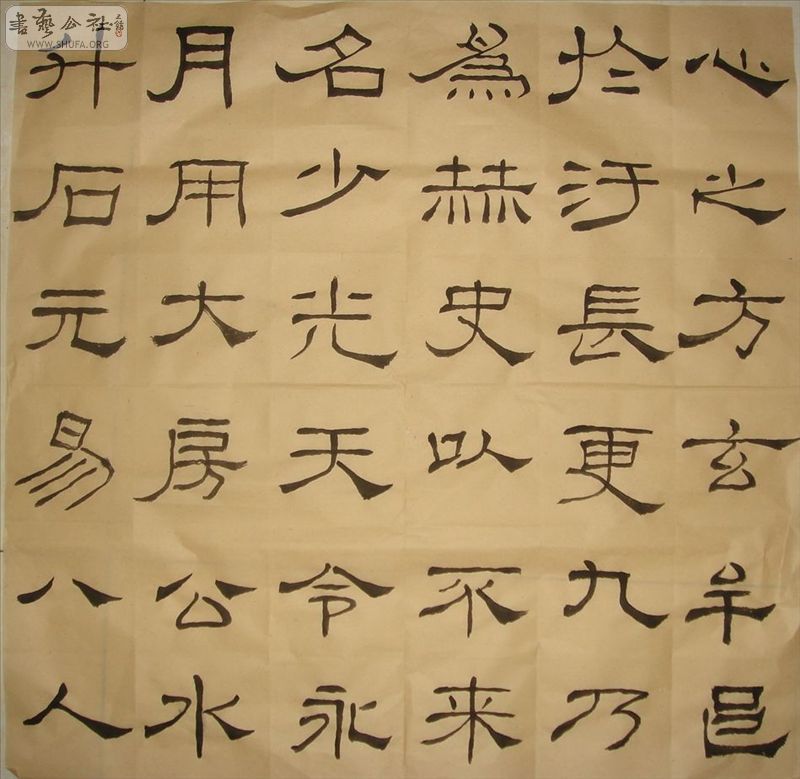 書藝公社
WWW.SHUFA.ORG
心之方玄牟邑
於汙長更九乃
爲赫史以不来
名少光天令永
月用大房公水
升石元易八人